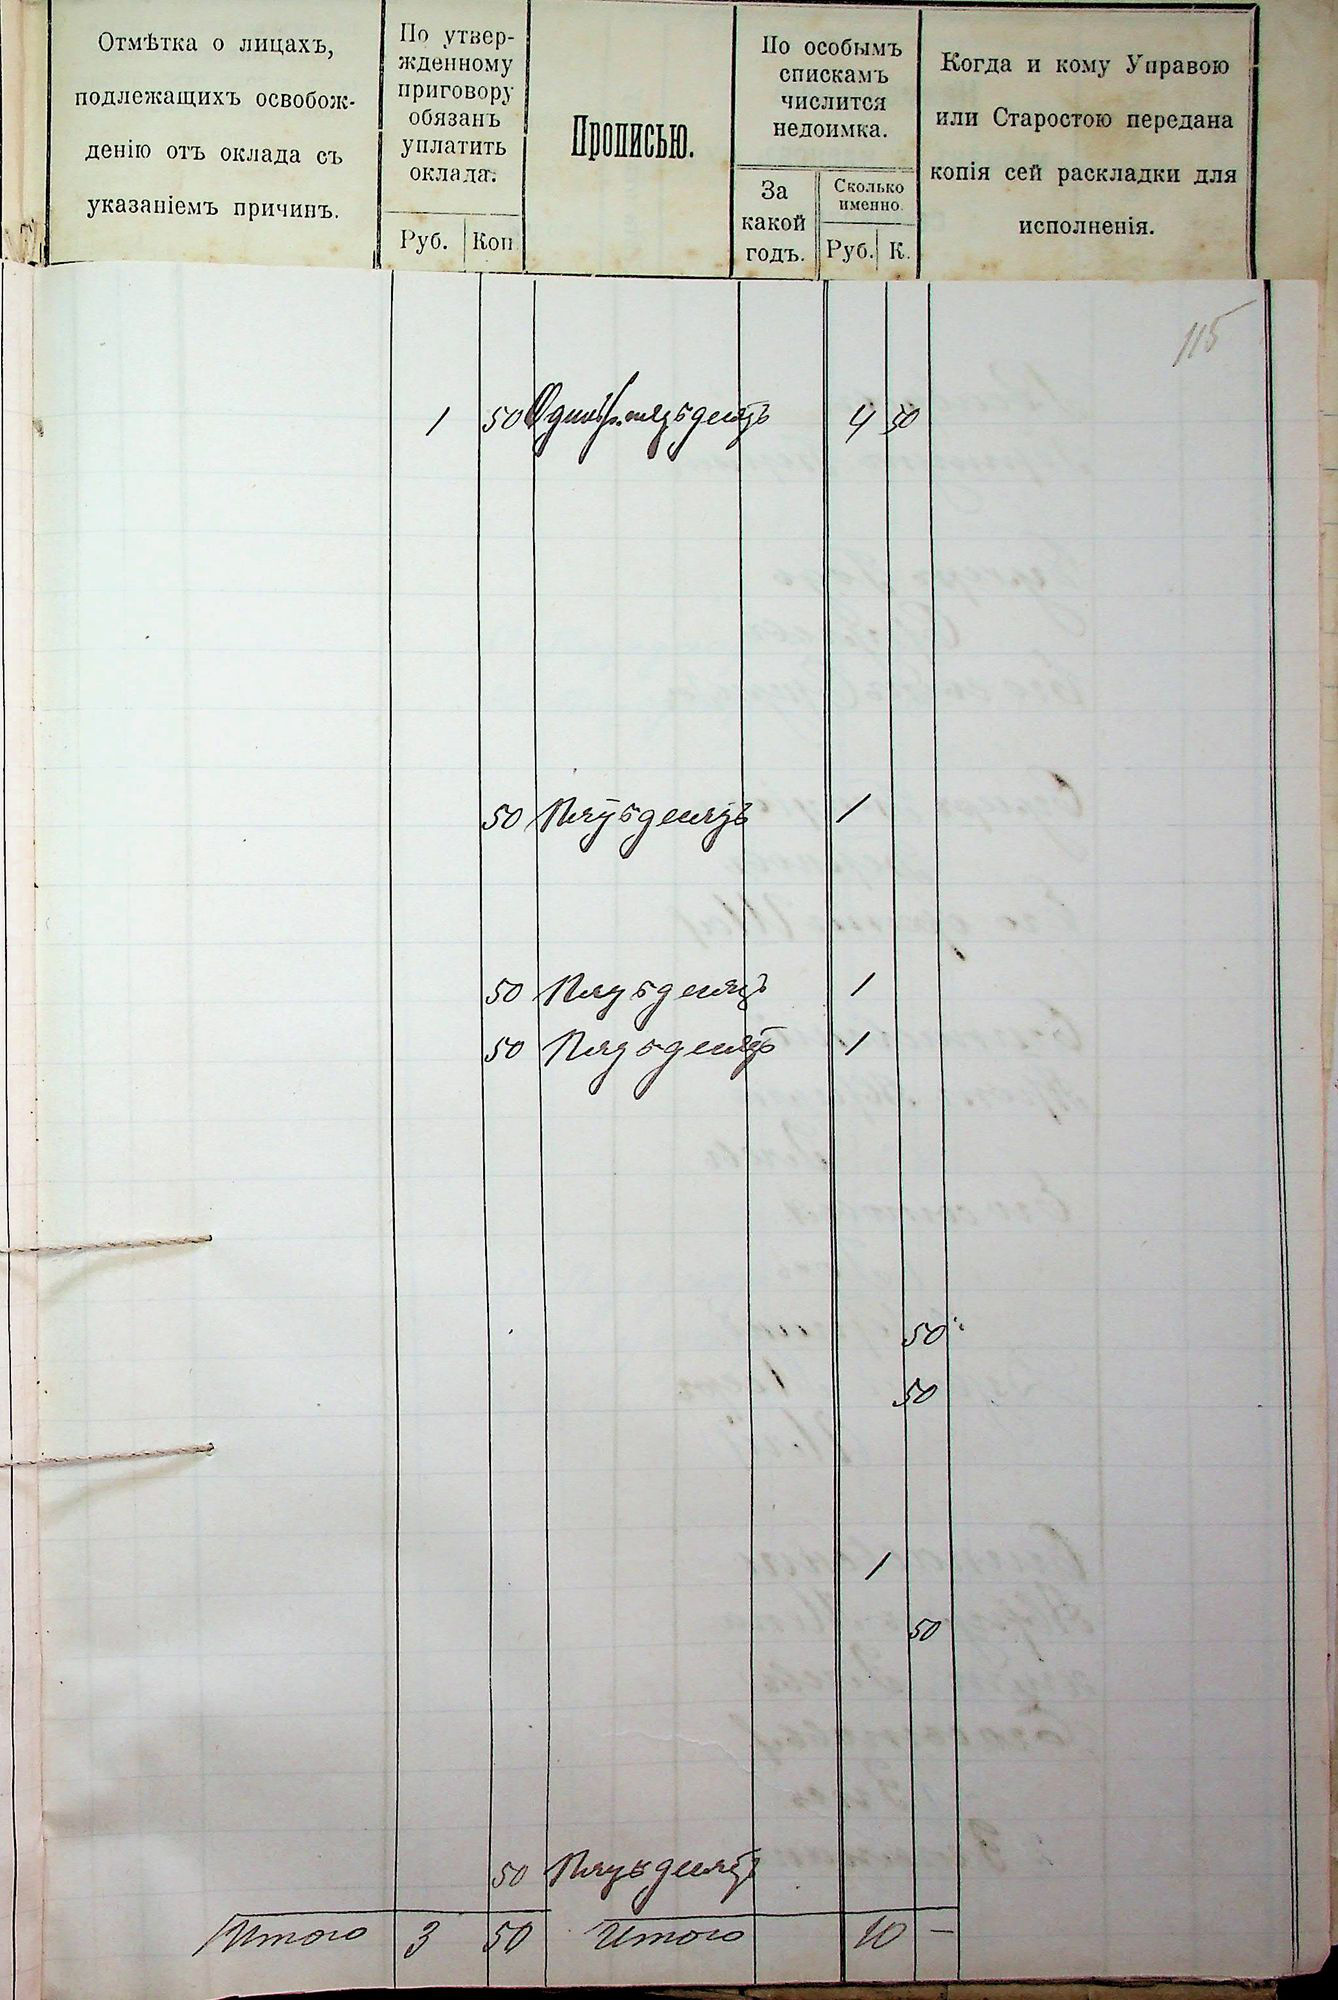 Отмѣтка о лицахъ,
подлежащихъ освобож-
денію отъ оклада съ
указаніемъ причинъ.
По утвер-
жденному
приговору
обязанъ
уплатить
оклада:
Руб. Коп
Прописью.
По особымъ
спискамъ
числится
недоимка.
За
какой
годъ.
Сколько
именно.
Руб. К.
Когда и кому Управою
или Старостою передана
копія сей раскладки для
исполненія.
115
1 50 Одинъ р. пятьдесятъ 4 50
50 Пятьдесятъ 1
50 Пятьдесятъ 1
50 Пятьдесятъ 1
50
50
1
50
50 Пятьдесятъ
Итого 3 50 Итого 10 —